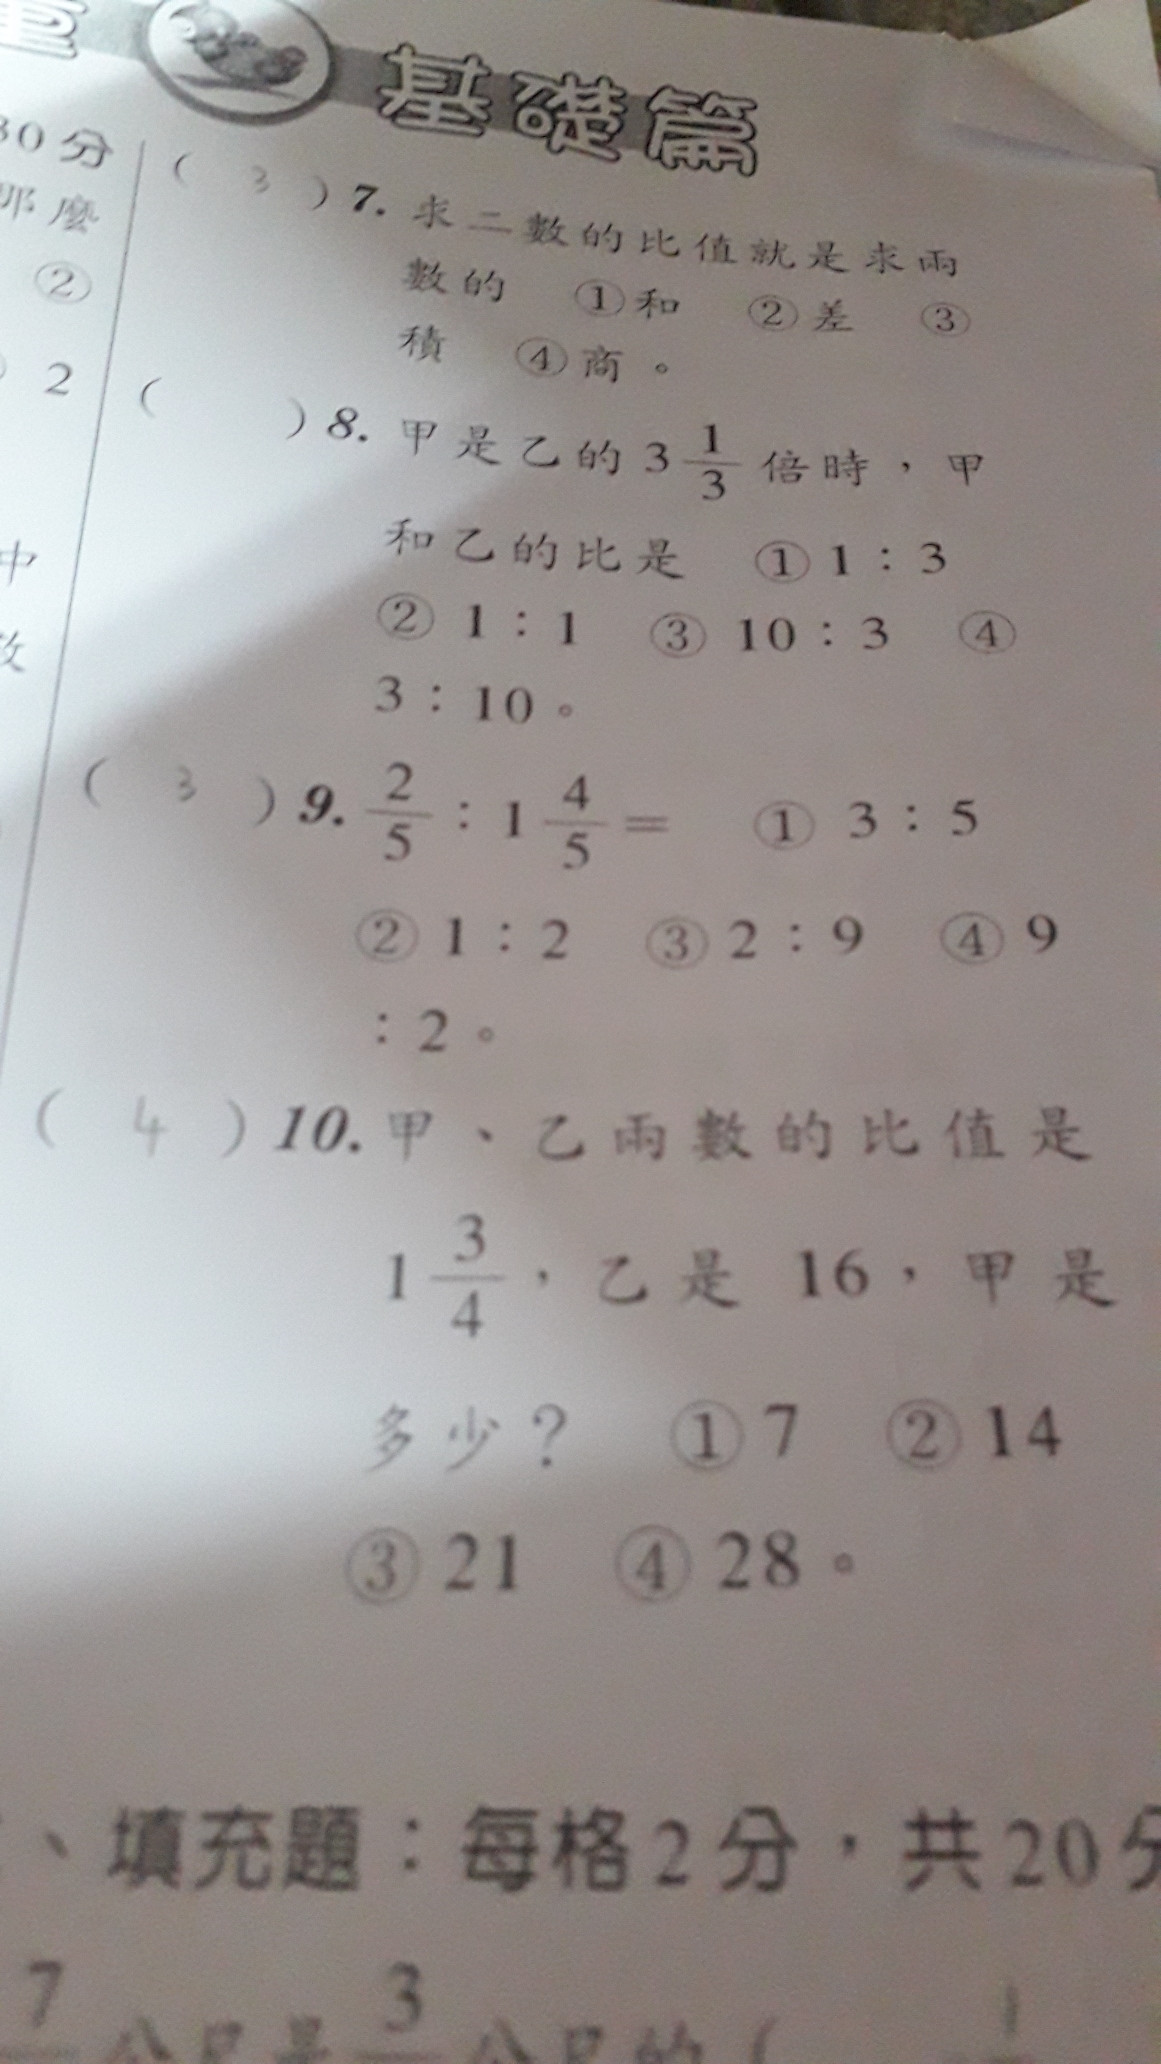 基礎篇
30分
那麼
②
2
中
( 3 ) 7. 求二數的比值就是求兩
數的 ①和 ②差 ③
積 ④商。
(   ) 8. 甲是乙的3 1/3 倍時，甲
和乙的比是 ①1：3
②1：1 ③10：3 ④
3：10。
( 3 ) 9. 2/5：1 4/5＝ ①3：5
②1：2 ③2：9 ④9
：2。
( 4 ) 10. 甲、乙兩數的比值是
1 3/4，乙是 16，甲是
多少？ ①7 ②14
③21 ④28。
、填充題：每格2分，共20分
7 公尺是 3 公尺的( 1